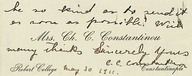 be so kind as to send it
as soon as possible? With
Mrs. Ch. C. Constantinou
many thanks Sincerely yours
C. C. Constantinou
Robert College May 30 1911. Constantinople